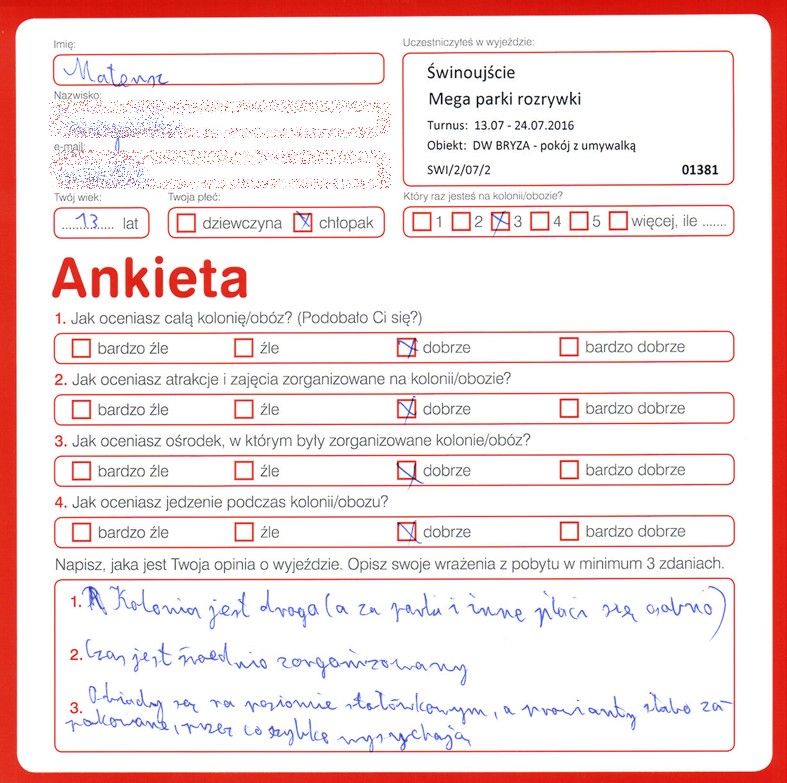 Imię:
Mateusz
Nazwisko:
e-mail:
Uczestniczyłeś w wyjeździe:
Świnoujście
Mega parki rozrywki
Turnus: 13.07 - 24.07.2016
Obiekt: DW BRYZA - pokój z umywalką
SWI/2/07/2 01381
Twój wiek:
13 lat
Twoja płeć:
dziewczyna chłopak
Który raz jesteś na kolonii/obozie?
1 2 3 4 5 więcej, ile .......
Ankieta
1. Jak oceniasz całą kolonię/obóz? (Podobało Ci się?)
bardzo źle źle dobrze bardzo dobrze
2. Jak oceniasz atrakcje i zajęcia zorganizowane na kolonii/obozie?
bardzo źle źle dobrze bardzo dobrze
3. Jak oceniasz ośrodek, w którym były zorganizowane kolonie/obóz?
bardzo źle źle dobrze bardzo dobrze
4. Jak oceniasz jedzenie podczas kolonii/obozu?
bardzo źle źle dobrze bardzo dobrze
Napisz, jaka jest Twoja opinia o wyjeździe. Opisz swoje wrażenia z pobytu w minimum 3 zdaniach.
1. Kolonia jest droga (a za parki i inne płaci się osobno)
2. Czas jest średnio zorganizowany
3. Obiady są na poziomie stołówkowym, a prowianty słabo za-
pakowane, przez co szybko wysychają